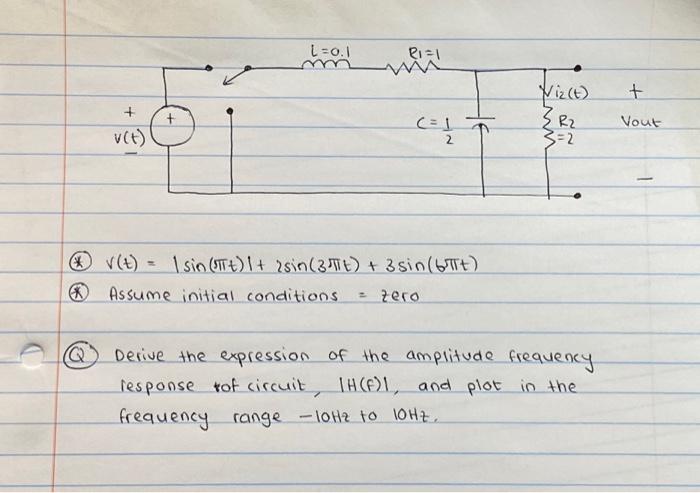 L=0.1 R1=1
+ v(t) -
+
C = 1/2
i2(t)
R2 =2
+ Vout -
* v(t) = |sin(5πt)| + 2sin(3πt) + 3sin(6πt)
* Assume initial conditions = zero
Q Derive the expression of the amplitude frequency
response of circuit, |H(F)|, and plot in the
frequency range -10Hz to 10Hz.